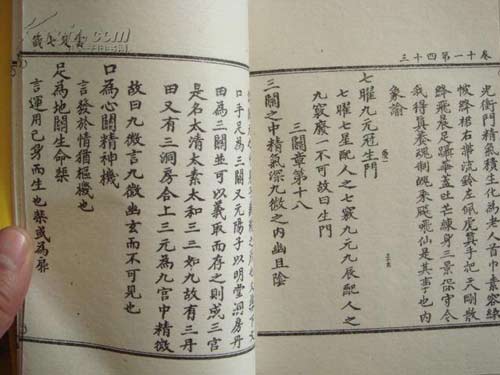 卷十一第四十三
光衛門精氣積生為老人首巾素容綠
帔絳裙右帶流鈴左佩虎真手把天剛散
絳飛晨足躡華蓋吐芒練身三景保守令
我得真養魂制魄乘飈飛仙是其事也内
象諭
七曜九元冠生門
七曜七星配人之七竅九元九辰配人之
九竅廢一不可故曰生門
三關章第十八
三關之中精氣深九微之内幽且陰
雲笈七籤
口手足為三關又元陽子以明堂洞房丹
田為三關並可以義取而存之則或三宫
是名太清太素太和三三如九故有三丹
田又有三洞房合上三元為九宫中精微
故曰九微言九微幽玄而不可見也
口為心關精神機
言發於情猶樞機也
足為地關生命棐
言運用己身而生也棐或為扉